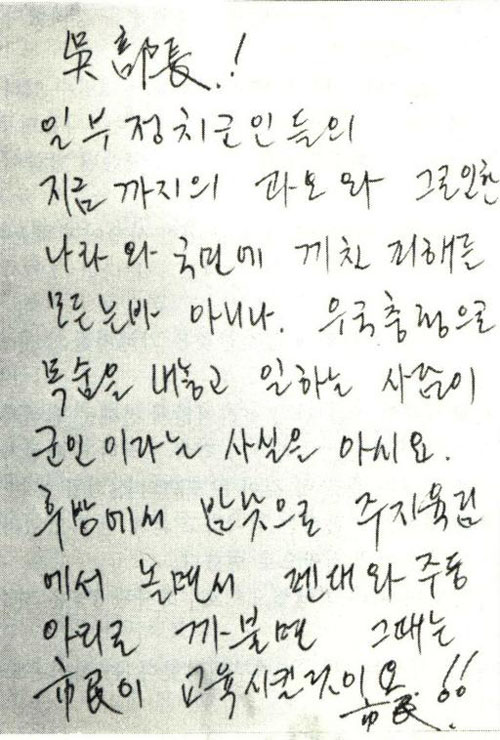 吳部長.!
일부 정치군인들의
지금까지의 과오와 그로인한
나라와 국민에 끼친 피해를
모르는바 아니나. 우국충정으로
목숨을 내놓고 일하는 사람이
군인이라는 사실은 아시요.
후방에서 밤낮으로 주지육림
에서 놀면서 펜대와 주둥
아리로 까불면 그때는
市民이 교육시킬 것이오.!!
市民.